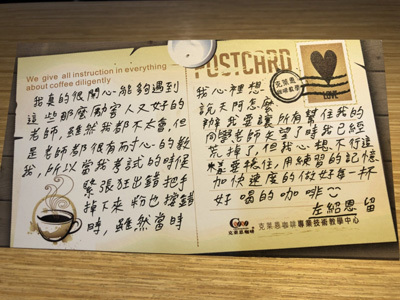 We give all instruction in everything
about coffee diligently
POSTCARD
克萊恩
咖啡教學
LOVE
我真的很開心能夠遇到
這些那麼勵害人又好的
老師,雖然我都不太會,但
是老師都很有耐心的教
我,所以當我考試的時候
緊張狂出錯把手
掉下來 粉也撞錯
時,雖然當時
我心裡想
說天阿怎麼
辦我要讓所有幫住我的
同學老師失望了時我已經
荒掉了,但我心想不行這
樣要穩住,用練習的記憶
加快速度的做好每一杯
好喝的咖啡
左紹恩 留
克萊恩咖啡
克萊恩咖啡專業技術教學中心